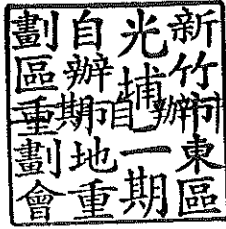 新竹市東區
光埔一期
自辦市地重
劃區重劃會